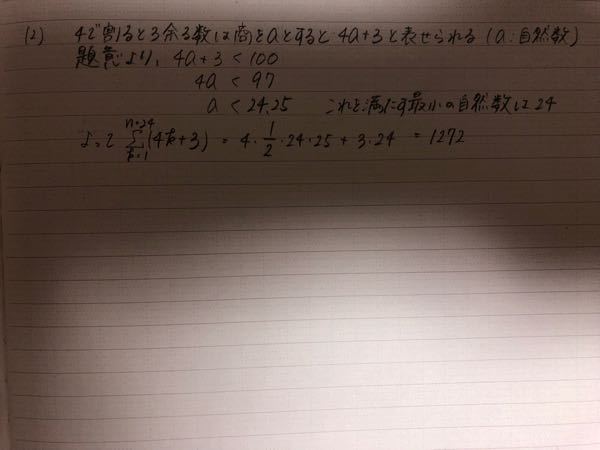 (2) 4で割ると3余る数は商をaとすると4a+3と表せられる(a:自然数)
題意より、4a+3<100
4a<97
a<24.25 これを満たす最小の自然数は24
よって \sum_{k=1}^{n=24}(4k+3)=4・\frac{1}{2}・24・25+3・24=1272